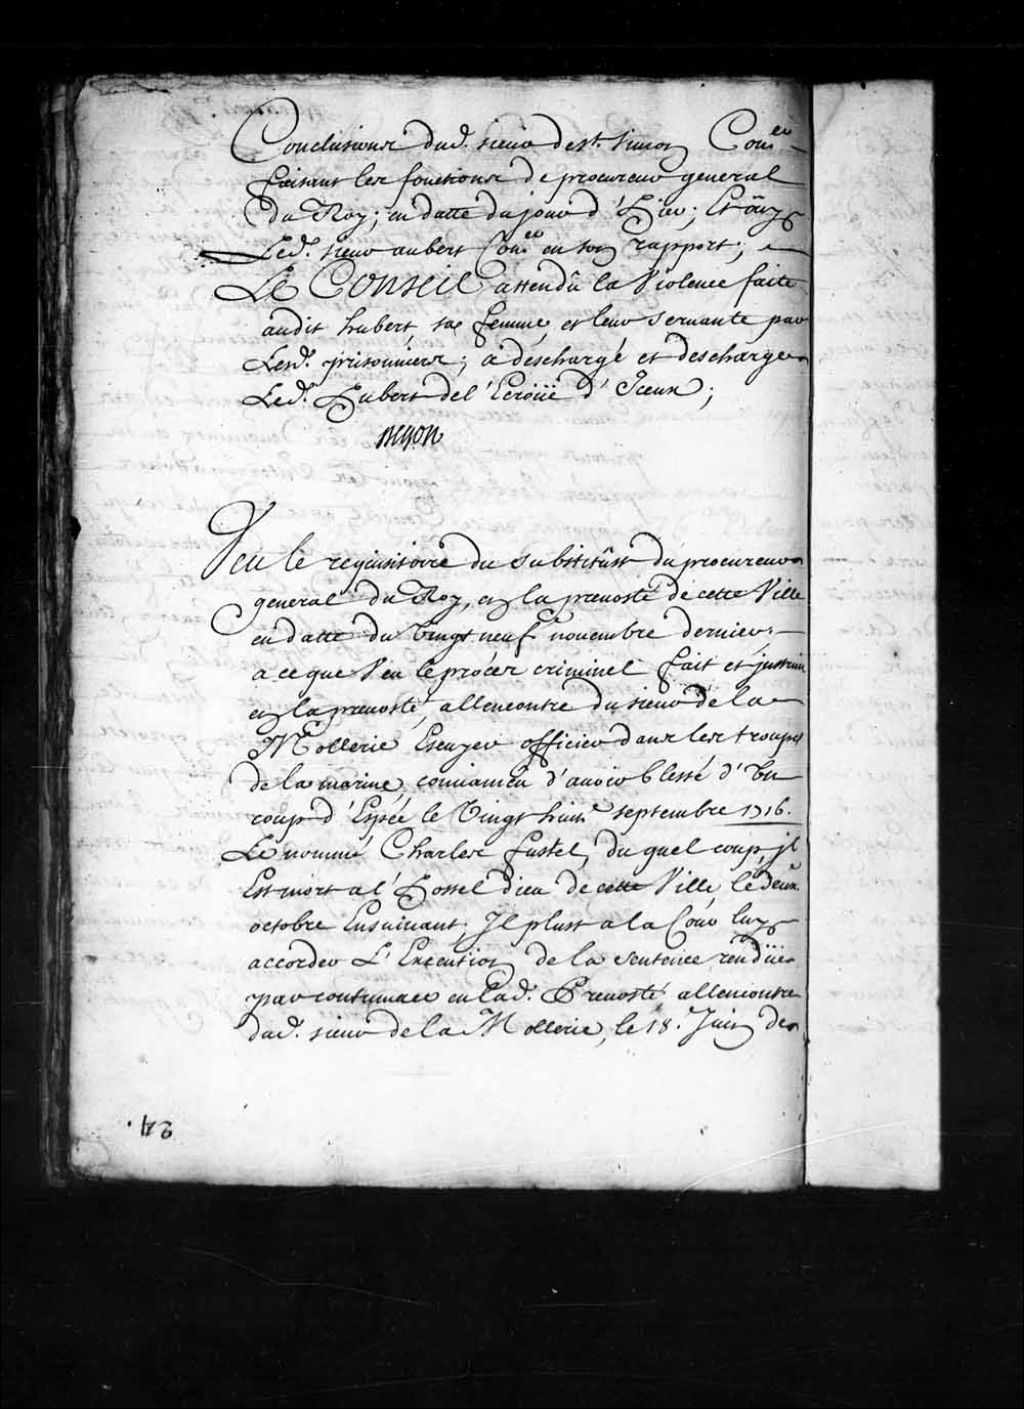 Conclusions dud. sieur de st. simon Coner
faisant les fonctions de procureur general
du Roy; en datte du jour d'Hier; Et ouy
Led. sieur aubert Coner en son rapport;
Le Conseil attendû la Violence faite
audit hubert, sa femme, et leur servante par
Lesd. prisonniers; a deschargé et descharge
Led. Hubert de l'Ecroüe d'Iceux;
Begon
Veu le requisitoire du substitût du procureur
general du Roy, en la prevosté de cette Ville
en datte du Vingt neuf novembre dernier,
a ce que Veu le procés criminel fait et instruit
en la prevosté, allencontre du sieur de la
Mollerie Escuyer officier dans les troupes
de la marine, conuaincu d'auoir blessé d'Vn
coup d'Espée le Vingt huite septembre 1716.
Le nommé Charles fustel, du quel coup, jl
Est mort a l'Hostel dieu de cette Ville, le deux
octobre Ensuiuant, Il plust a la Cour luy
accorder L'Execution de la sentence rendüe
par contumace en lad. Prevosté allencontre
dud. sieur de la Mollerie, le 18. Juin de
24.